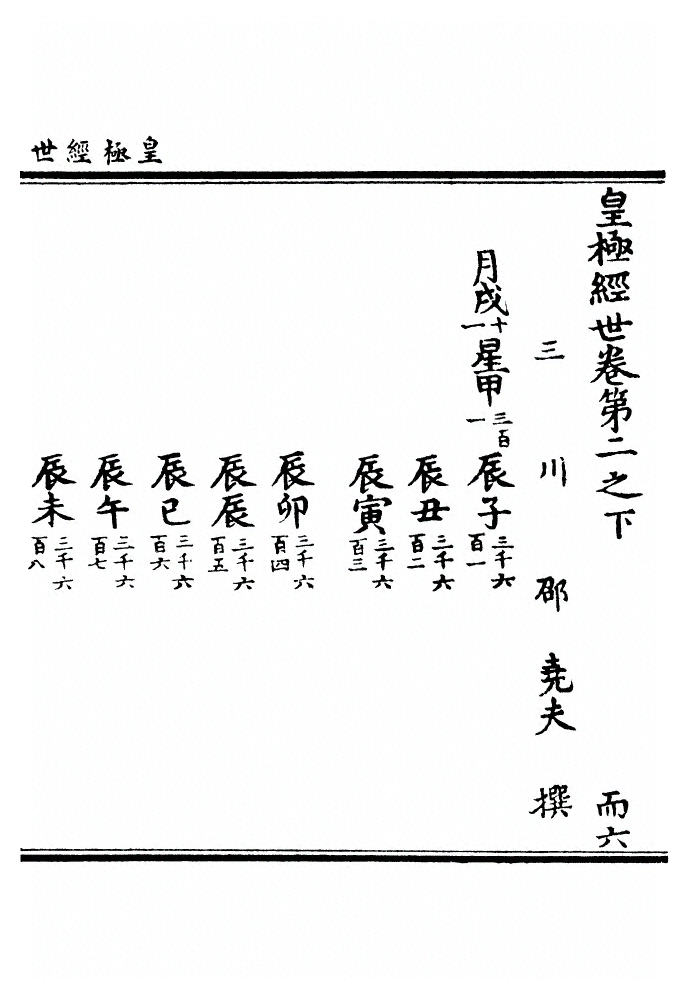 皇極經世
皇極經世卷第二之下 而六
三川 邵堯夫 撰
月戌十一星甲三百一辰子三千六百一
辰丑三千六百二
辰寅三千六百三
辰卯三千六百四
辰辰三千六百五
辰巳三千六百六
辰午三千六百七
辰未三千六百八